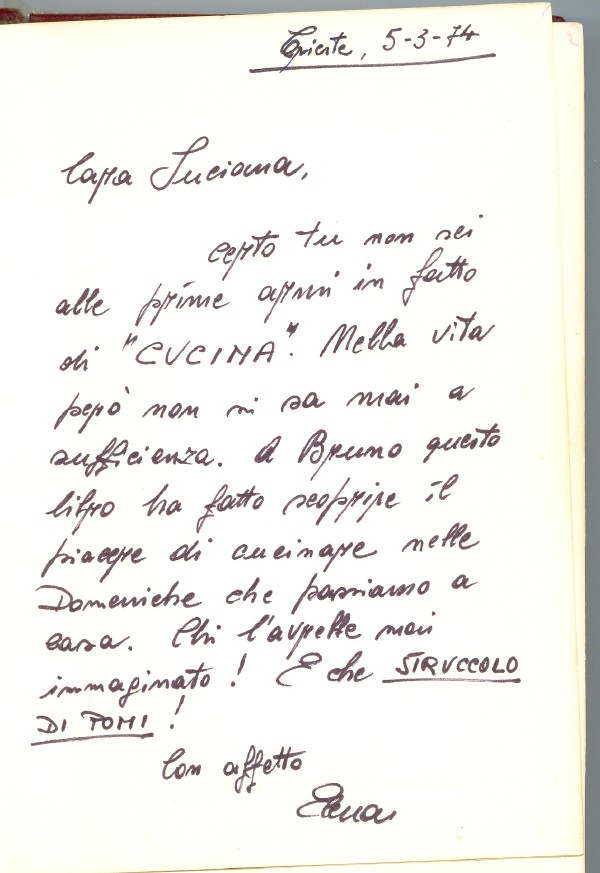 Trieste, 5-3-74
Cara Luciana,
certo tu non sei
alle prime armi in fatto
di "CUCINA". Nella vita
però non si sa mai a
sufficienza. A Bruno questo
libro ha fatto scoprire il
piacere di cucinare nelle
Domeniche che passiamo a
casa. Chi l'avrebbe mai
immaginato! E che STRUCCOLO
DI POMI!
Con affetto